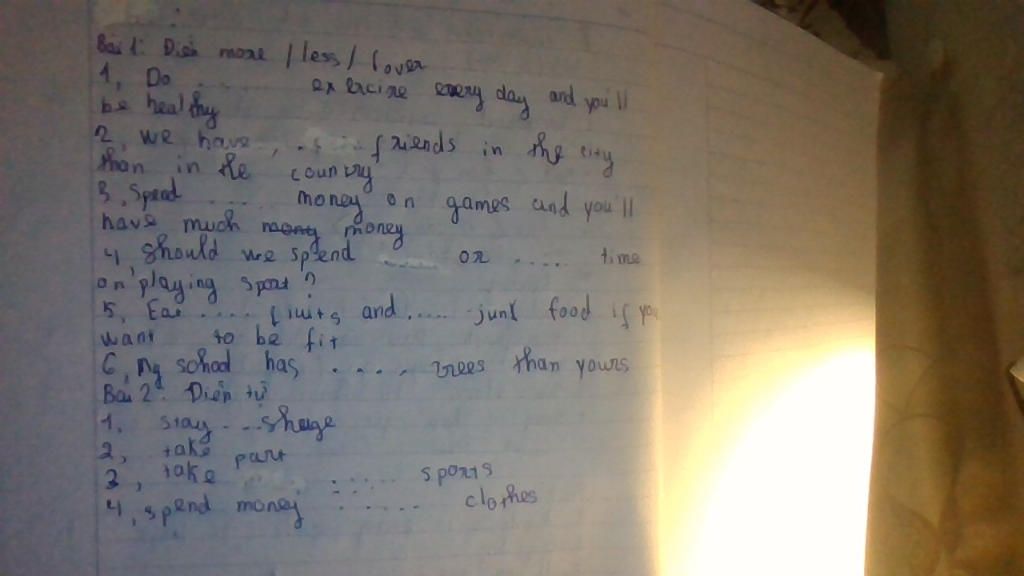 Bài 1: Điền more / less / fover
1, Do ........ exercise every day and you'll
be healthy
2, We have ..... friends in the city
than in the country
3, Spend ..... money on games and you'll
have much money
4, should we spend ..... or ..... time
on playing sport?
5, Eat ..... fruits and ..... junk food if you
want to be fit
6, My school has ..... trees than yours
Bài 2: Điền từ
1, stay ... shape
2, take part
3, take ..... sports
4, spend money ...... clothes